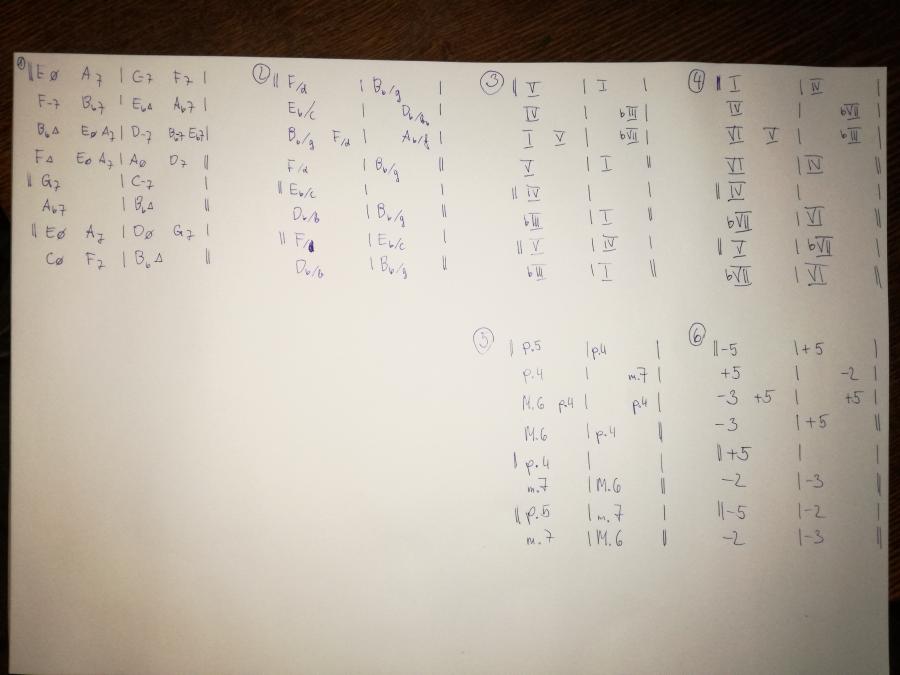 ① || EØ A7 | C-7 F7 |
F-7 Bb7 | EbΔ Ab7 |
BbΔ EØ A7 | D-7 Bb7 Eb7 |
FΔ EØ A7 | AØ D7 ||
|| G7 | C-7 |
Ab7 | BbΔ ||
|| EØ A7 | DØ G7 |
CØ F7 | BbΔ ||
② || F/d | Bb/g |
Eb/c | |
Bb/g F/d | Ab/f |
F/d | Bb/g ||
|| Eb/c | |
Db/b | Bb/g ||
|| | Eb/c |
Db/b | Bb/g ||
③ || V | I |
IV | bIII |
I V | bVII |
V | I ||
|| IV | |
bIII | I ||
|| V | IV |
bIII | I ||
④ || I | IV |
IV | bVII |
VI V | bIII |
VI | IV ||
|| IV | |
bVII | VI ||
|| V | bVII |
bVII | VI ||
⑤ || p.5 | p.4 |
p.4 | m.7 |
M.6 p.4 | p.4 |
M.6 | p.4 ||
|| p.4 | |
m.7 | M.6 ||
|| p.5 | m.7 |
m.7 | M.6 ||
⑥ || -5 | +5 |
+5 | -2 |
-3 +5 | +5 |
-3 | +5 ||
|| +5 | |
-2 | -3 ||
|| -5 | -2 |
-2 | -3 ||